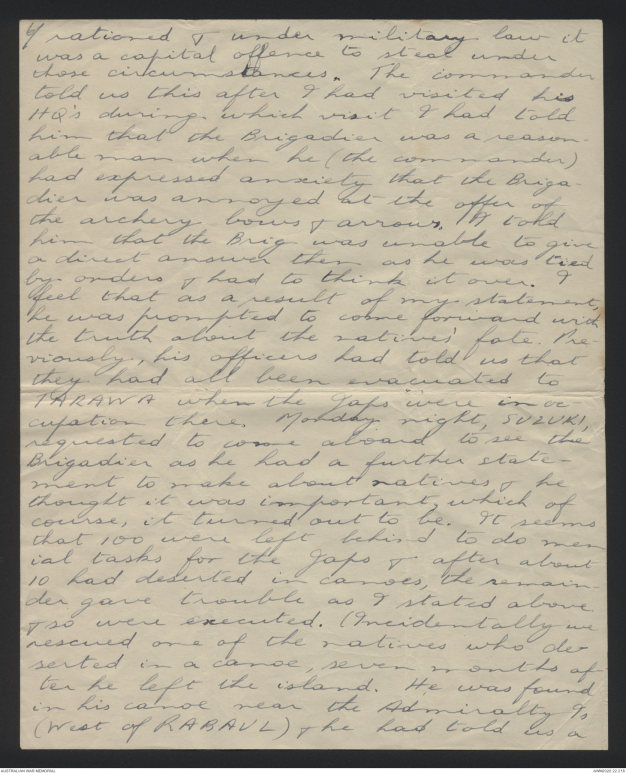 6/ rationed & under military law it
was a capital offence to steal under
those circumstances. The commander
told us this after I had visited his
HQ's during which visit I had told
him that the Brigadier was a reason-
able man when he (the commander)
had expressed anxiety that the Briga-
dier was annoyed at the offer of
the archery bows & arrows. I told
him that the Brig was unable to give
a direct answer then as he was tied
by orders & had to think it over. I
feel that as a result of my statement,
he was prompted to come forward with
the truth about the natives' fate. Pre-
viously, his officers had told us that
they had all been evacuated to
TARAWA when the Japs were in oc-
cupation there. Monday night, SUZUKI,
requested to come aboard to see the
Brigadier as he had a further state-
ment to make about natives & he
thought it was important, which of
course, it turned out to be. It seems
that 100 were left behind to do men-
ial tasks for the Japs & after about
10 had deserted in canoes, the remain-
der gave trouble as I stated above
& so were executed. (Incidentally we
rescued one of the natives who de-
serted in a canoe, seven months af-
ter he left the island. He was found
in his canoe near the Admiralty Is
(West of RABAUL) & he had told us a
AUSTRALIAN WAR MEMORIAL